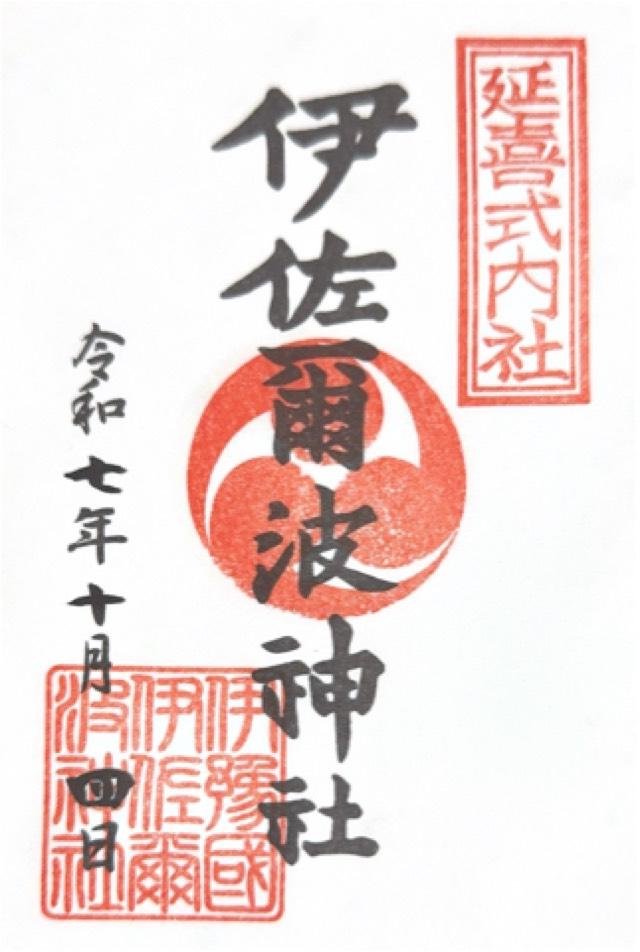 延喜式内社
伊佐爾波神社
令和七年十月四日
伊豫國
伊佐爾
波神社